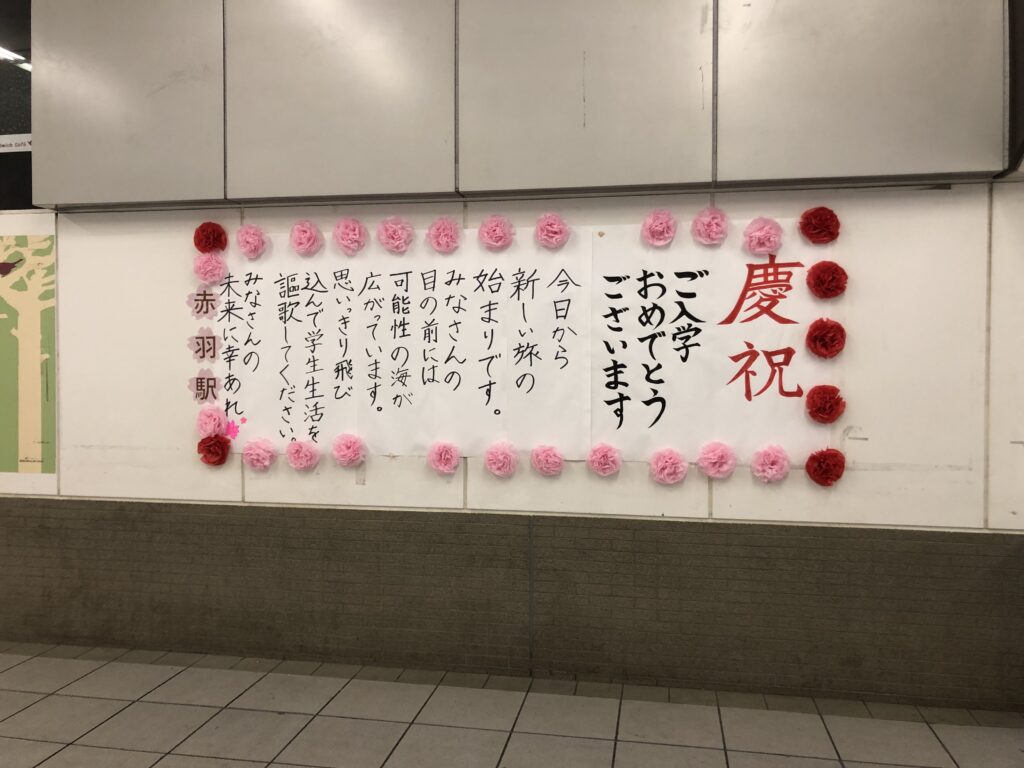 慶祝
ご入学
おめでとう
ございます
今日から
新しい旅の
始まりです。
みなさんの
目の前には
可能性の海が
広がっています。
思いっきり飛び
込んで学生生活を
謳歌してください。
みなさんの
未来に幸あれ
赤羽駅